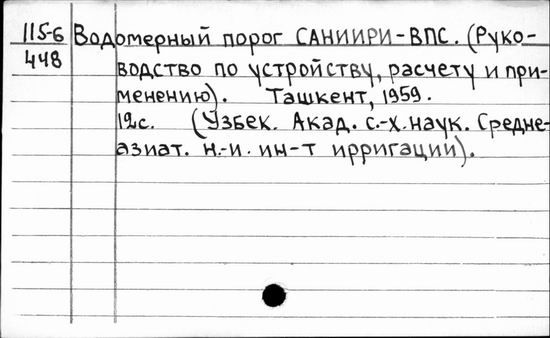 115-6 Водомерный порог САНИИРИ-ВПС. (Руко-
448
водство по устройству, расчету и при-
менению). Ташкент, 1959.
12с. (Узбек. Акад. с.-х. наук. Средне-
азиат. н.-и. ин-т ирригации).